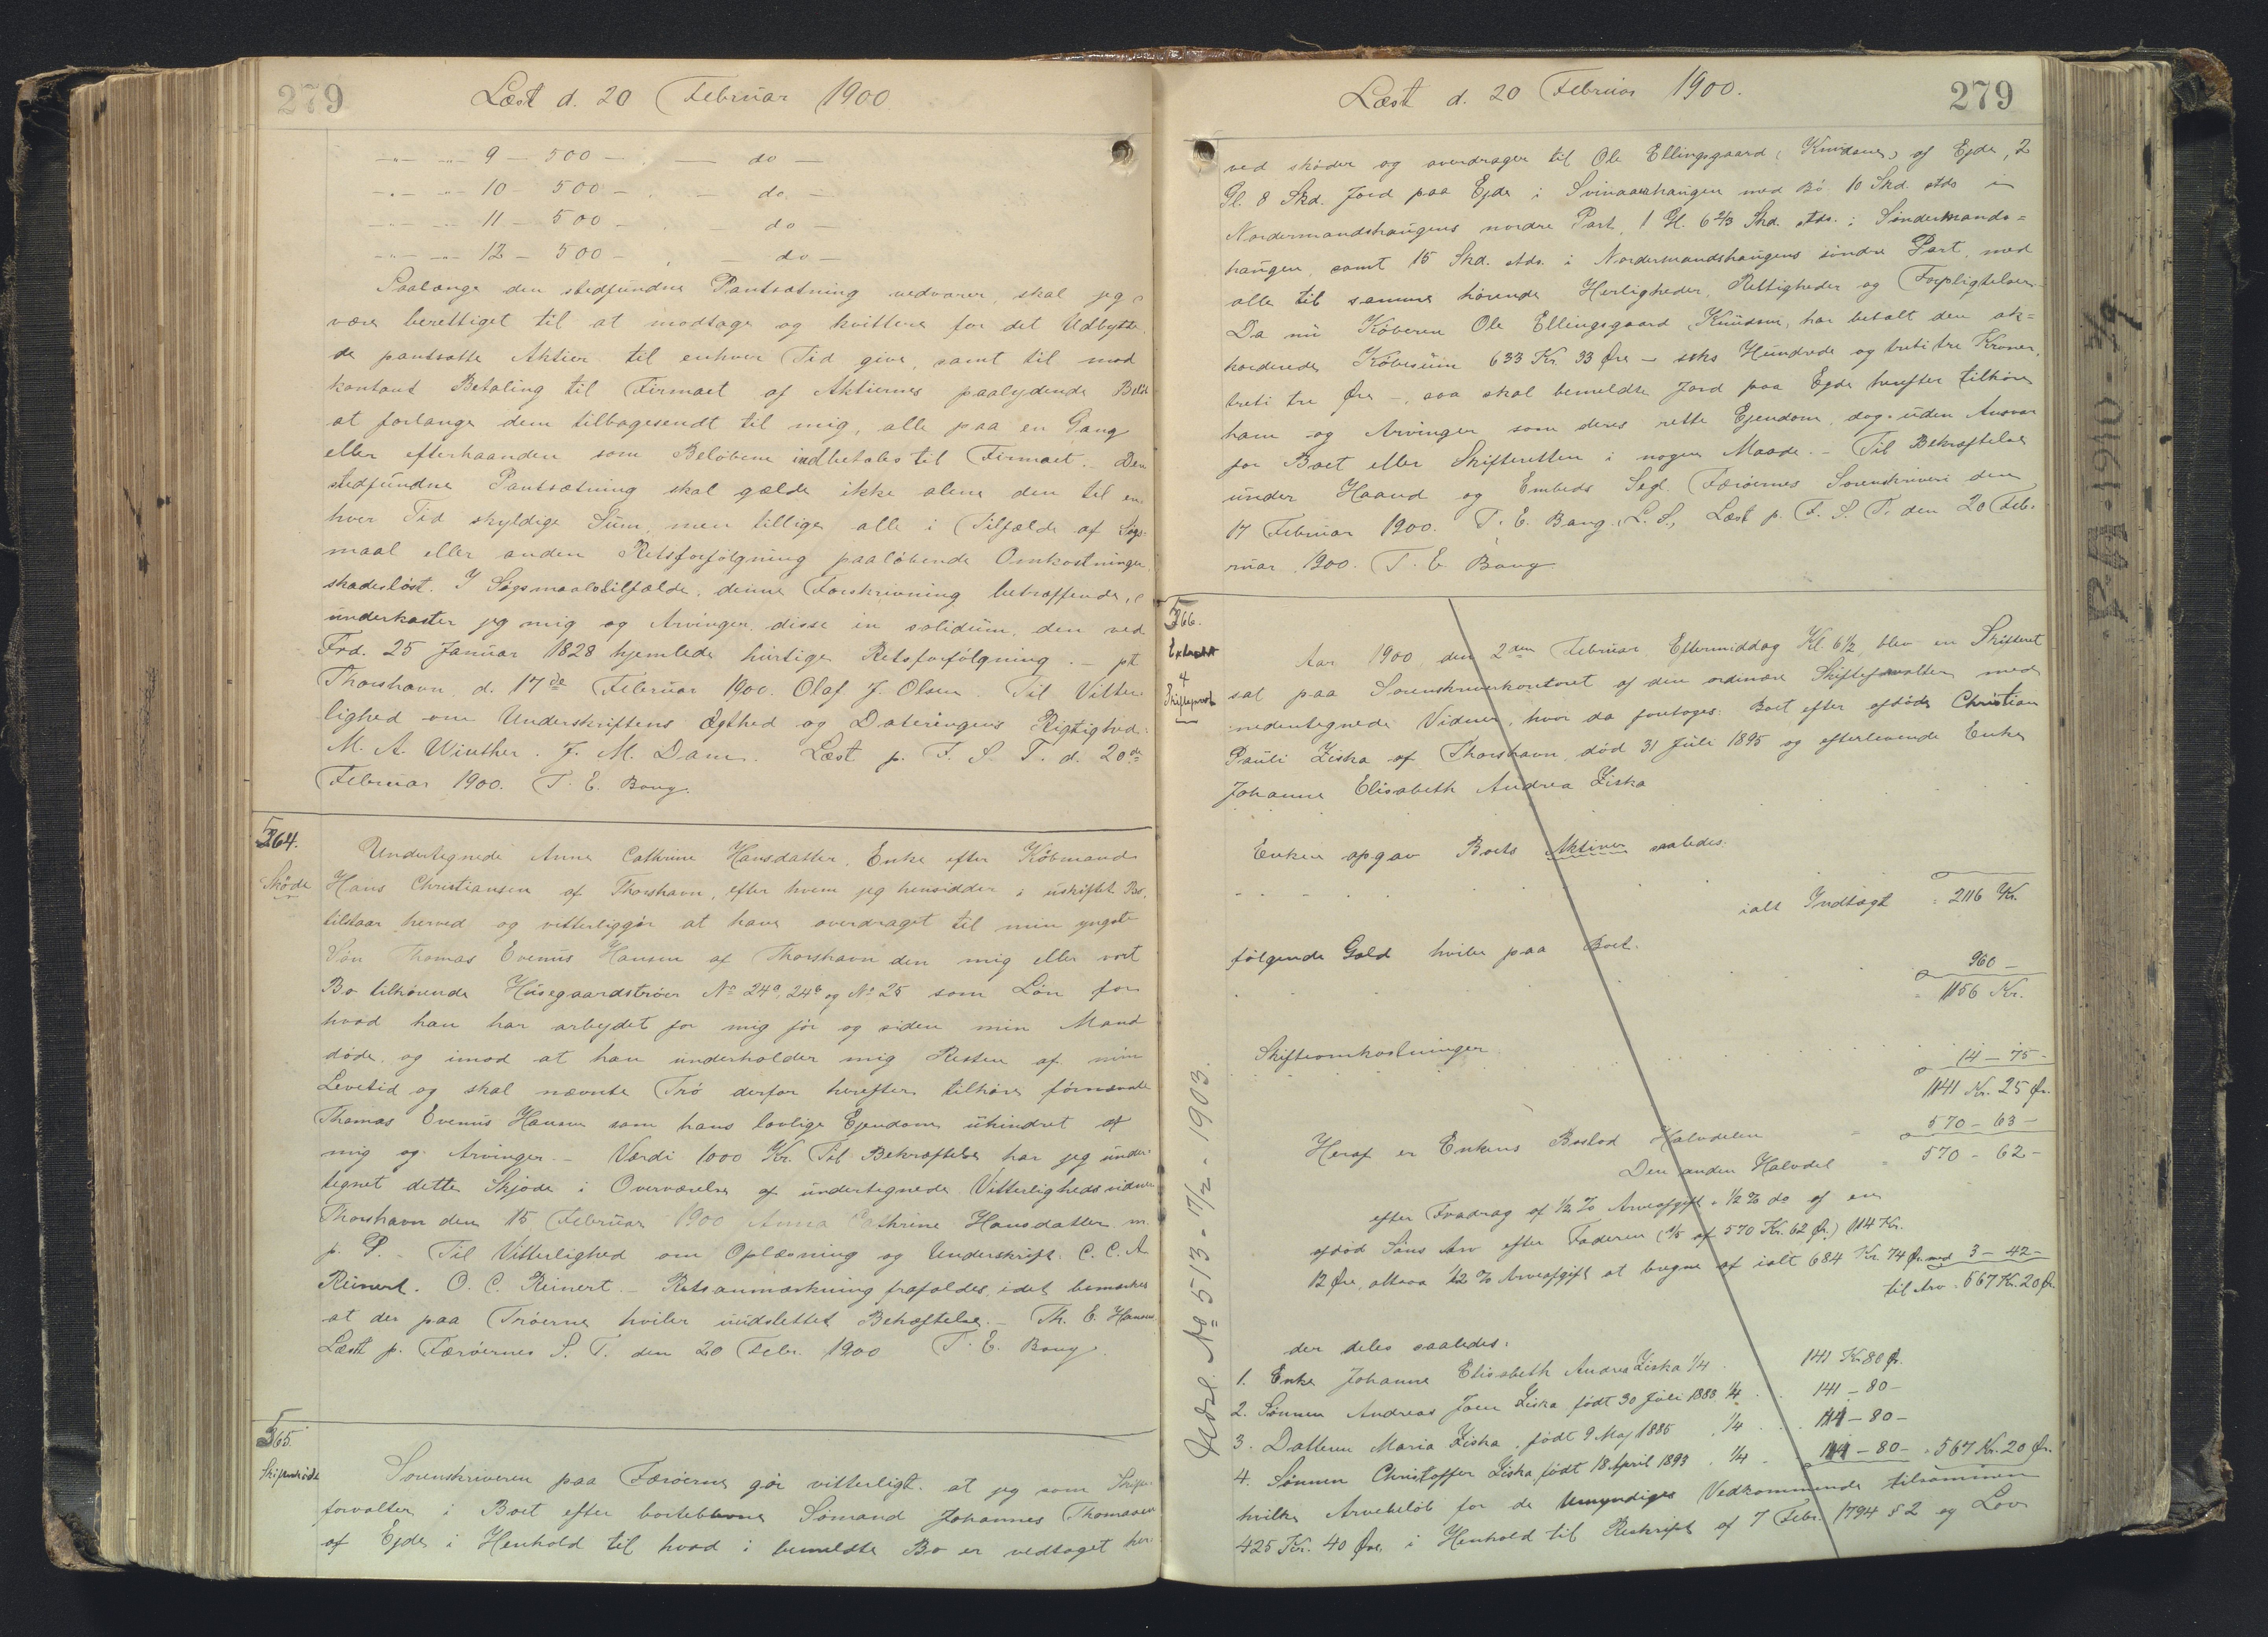 279
Læst d. 20 Februar 1900.
—"— —"— 9 — 500 — . — do —
—"— —"— 10 — 500 — . — do —
—"— —"— 11 — 500 — . — do —
—"— —"— 12 — 500 — . — do —
Saalænge den stedfundne Pantsætning vedvarer, skal jeg
være berettiget til at modtage og kvittere for det Udbytte,
de pantsatte Aktier til enhver Tid give, samt til mod
kontant Betaling til Firmaet af Aktiernes paalydende Beløb
at forlange dem tilbagesendt til mig, alle paa en Gang
eller efterhaanden som Beløbene indbetales til Firmaet. - Den
stedfundne Pantsætning skal gælde ikke alene den til en-
hver Tid skyldige Sum, men tillige alle i Tilfælde af Søgs-
maal eller anden Retsforfølgning paaløbende Omkostninger
skadesløst. I Søgsmaalstilfælde, denne Forskrivning betræffende,
underkaster jeg mig og Arvinger, disse in solidum, den ved
Frd. 25 Januar 1828 hjemlede hurtige Retsforfølgning. - pt
Thorshavn, d. 17de Februar 1900. Olaf J. Olsen. Til Vitter-
lighed om Underskriftens Ægthed og Dateringens Rigtighed:
M. A. Winther. J. M. Dam. Læst p. F. S. T. d. 20de
Februar 1900. T. E. Bang.
564.
Skøde
Undertegnede Anne Cathrine Hansdatter, Enke efter Købmand
Hans Christiansen af Thorshavn, efter hvem jeg hensidder i uskiftet Bo,
tilstaar herved og vitterliggør at have overdraget til min yngste
Søn Thomas Evenus Hansen af Thorshavn den mig eller vort
Bo tilhørende Husegaardstrøer No 24a, 24b og No 25 som Løn for
hvad han har arbejdet for mig før og siden min Mand
døde, og imod at han underholder mig Resten af min
Levetid og skal nævnte Trø derfor herefter tilhøre førnævnte
Thomas Evenus Hansen som hans lovlige Ejendom uhindret af
mig og Arvinger. - Værdi 1000 Kr. Til Bekræftelse har jeg under-
tegnet dette Skjøde i Overværelse af undertegnede Vitterlighedsvidner
Thorshavn den 15 Februar 1900 Anna Cathrine Hansdatter m.
p. P. - Til Vitterlighed om Oplæsning og Underskrift: C. C. A
Reinert. O. C. Reinert. - Retsanmærkning frafaldes, idet bemærkes
at der paa Trøerne hviler uudslettet Behæftelse. - Th. E. Hansen
Læst p. Færøernes S. T. den 20 Febr. 1900 T. E. Bang.
565.
Skifteskøde
Sorenskriveren paa Færøerne gør vitterligt: at jeg som Skifte-
forvalter i Boet efter bortebleven Sømand Johannes Thomasen
af Ejde i Henhold til hvad i bemeldte Bo er vedtaget her-
Læst d. 20 Februar 1900.
279
ved skøder og overdrager til Ole Ellingsgaard (Knudsen) af Ejde, 2
Gl. 8 Skd. Jord paa Ejde i Svinaahaugen med Bø. 10 Skd. stds i
Nordermandshaugens nordre Part, 1 Gl. 6 2/3 Skd. stds. i Sindermands=
haugen, samt 15 Skd. stds. i Nordermandshaugens søndre Part, med
alle til samme hørende Herligheder, Rettigheder og Forpligtelser.
Da nu Køberen Ole Ellingsgaard (Knudsen), har betalt den ak=
korderede Købesum 633 Kr. 33 Øre - seks Hundrede og treti tre Kroner,
treti tre Øre -, saa skal bemeldte Jord paa Ejde herefter tilhøre
ham og Arvinger som deres rette Ejendom, dog uden Ansvar
for Boet eller Skifteretten i nogen Maade. - Til Bekræftelse
under Haand og Embeds Segl. Færøernes Sorenskriveri den
17 Februar 1900. T. E. Bang. (L. S.) Læst p. F. S. T. den 20 Feb-
ruar 1900. T. E. Bang
566.
Extract
Aar 1900, den 2den Februar Eftermiddag Kl. 6½, blev en Skifteret
sat paa Sorenskriverkontoret af den ordinære Skifteforvalter med
nedentegnede Vidner, hvor da foretoges: Boet efter afdøde Christian
Pauli Ziska af Thorshavn, død 31 Juli 1895 og efterlevende Enke
Johanne Elisabeth Andrea Ziska
Enken opgav Boets Aktiver saaledes:
ialt Indtægt = 2116 Kr.
følgende Gæld hviler paa Boet.
960 —
= 1156 Kr.
Skifteomkostninger
14 — 75 -
1141 Kr. 25 Ør.
Heraf er Enkens Boslod Halvdelen = 570 - 63 -
Den anden Halvdel = 570 - 62 -
efter Fradrag af ½ % Arveafgift + ½ % do af en
afdød Søns Arv efter Faderen (1/5 af 570 Kr. 62 Ør.) 114 Kr.
12 Øre, altsaa ½ % Arveafgift at beregne af ialt 684 Kr. 74 Ør. med 3 - 42 -
til Arv. 567 Kr. 20 Ør.
der deles saaledes:
1. Enke Johanne Elisabeth Andrea Ziska 1/4 . 141 Kr. 80 Ør.
2. Sønnen Andreas Joen Ziska født 30 Juli 1883 1/4 . 141 - 80 -
3. Datteren Maria Ziska, født 9 Maj 1885 , 1/4 . 141 - 80 -
4. Sønnen Christoffer Ziska født 18 April 1893 , 1/4 . 141 - 80 - . 567 Kr. 20 Ør.
hvilke Arvebeløb for de umyndiges Vedkommende tilsammen
425 Kr. 40 Øre, i Henhold til Reskript af 7 Febr. 1794 § 2 og Lov
No 513 - 17/2 - 1903.